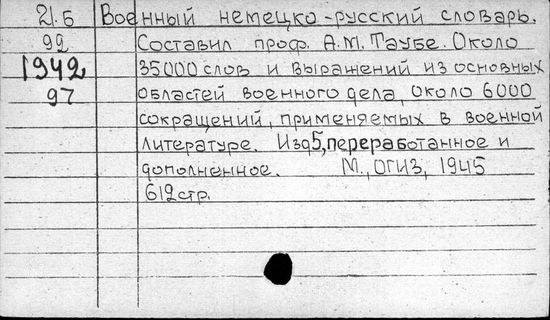 21.б Военный немецко-русский словарь.
92 Составил проф. А.М. Таубе. Около
1942 35000 слов и выражений из основных
97 областей военного дела, около 6000
сокращений, применяемых в военной
литературе. Изд 5, переработанное и
дополненное. М., ОГИЗ, 1945
612 стр.